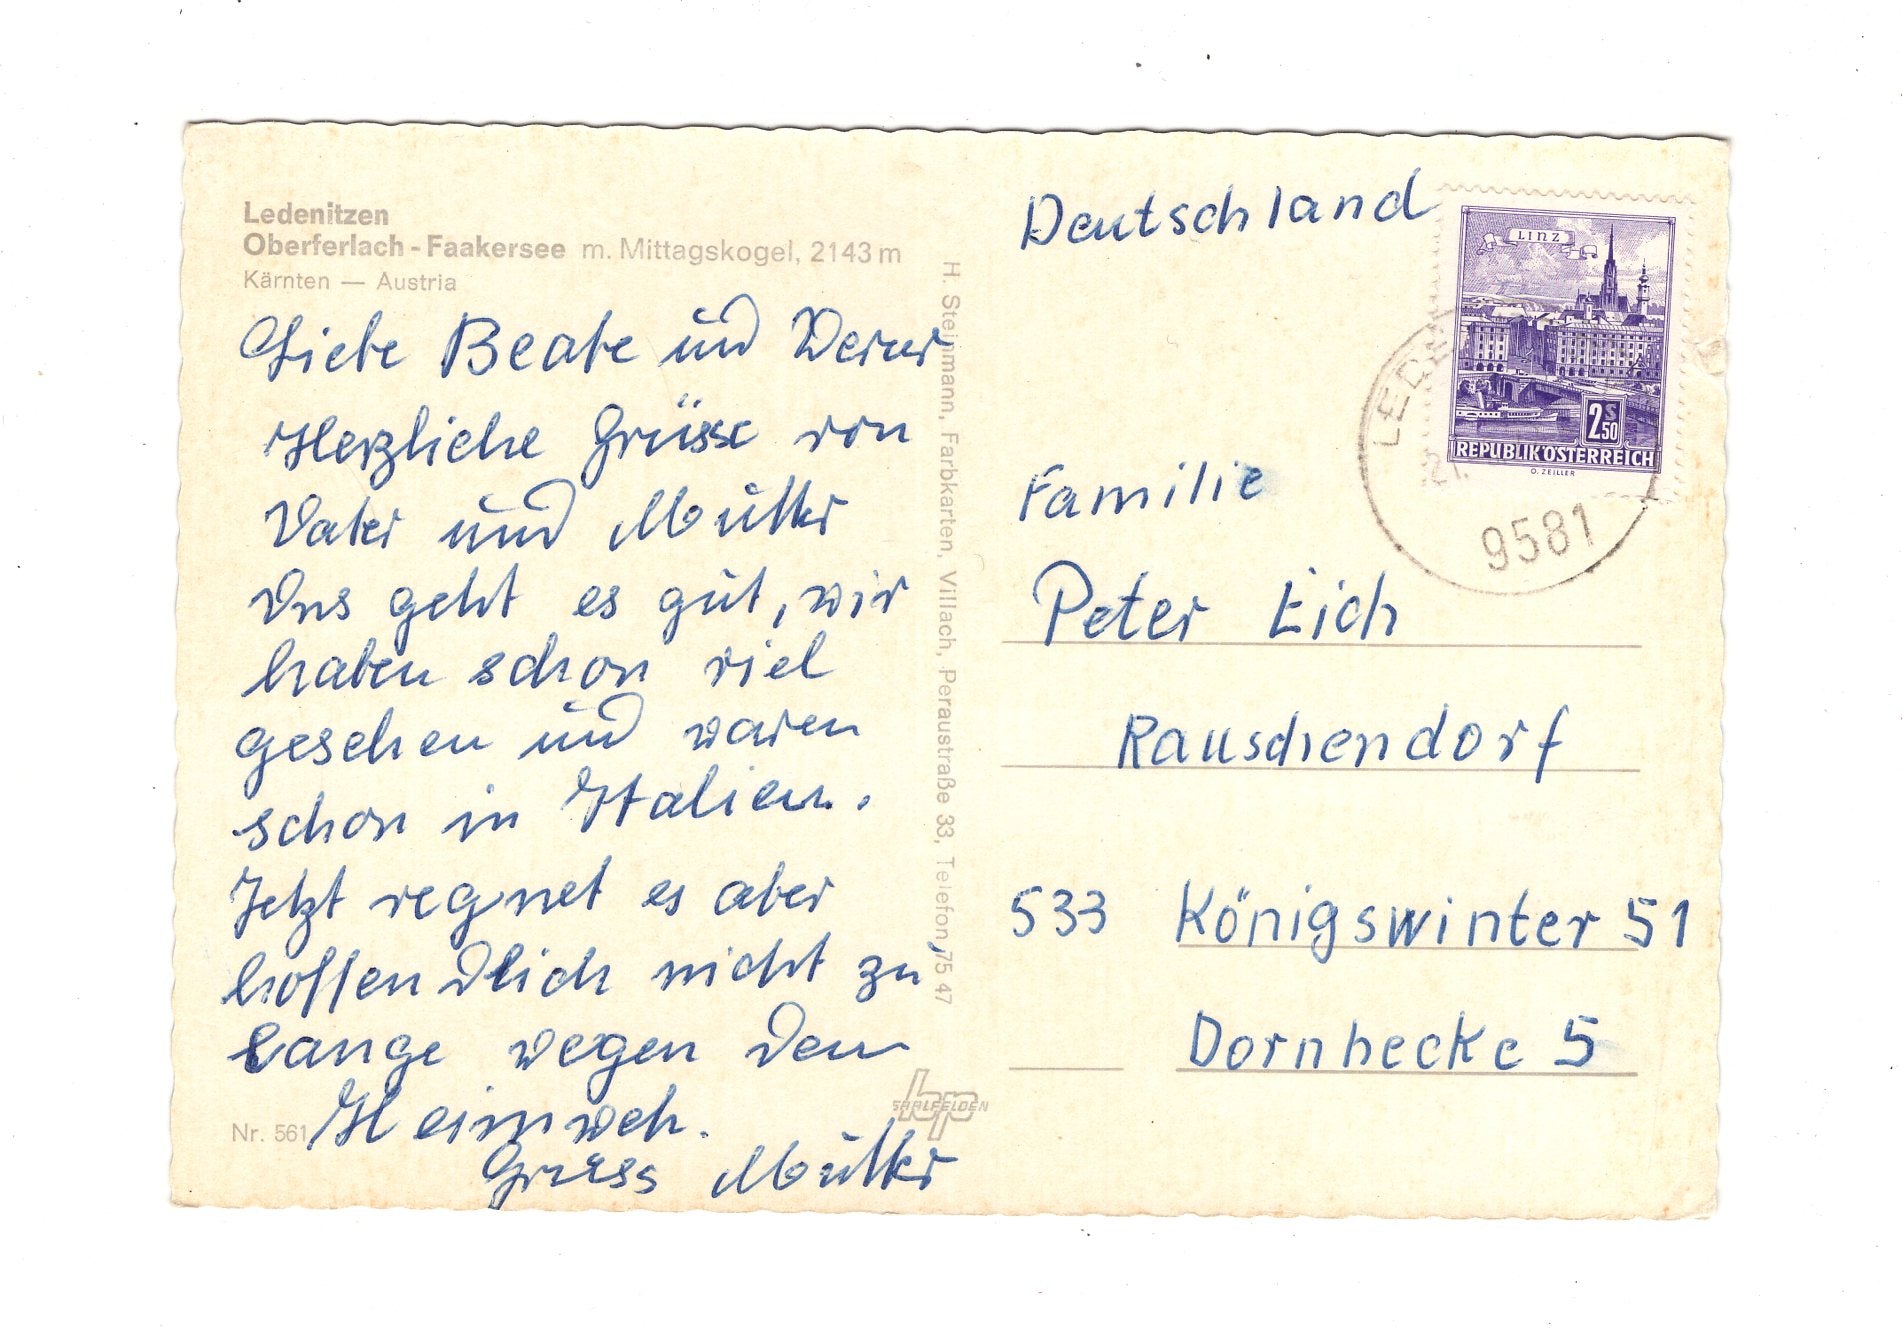 Ledenitzen
Oberferlach - Faakersee m. Mittagskogel, 2143 m
Kärnten — Austria
Liebe Beate und Werner
Herzliche Grüsse von
Vater und Mutter
Uns geht es gut, wir
haben schon viel
gesehen und waren
schon in Italien.
Jetzt regnet es aber
hoffendlich nicht zu
lange wegen dem
Heimweh.
Gruss Mutter
Nr. 561
H. Steinmann, Farbkarten, Villach, Peraustraße 33, Telefon 75 47
SAALFELDEN
Deutschland
LINZ
2 S 50
REPUBLIK ÖSTERREICH
O. ZEILLER
21.
9581
Familie
Peter Eich
Rauschendorf
533 Königswinter 51
Dornhecke 5